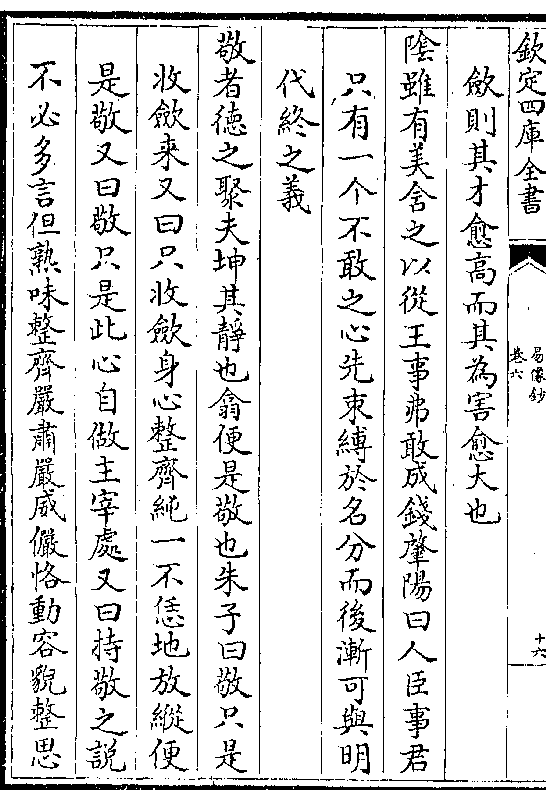 欽定四庫全書
易像鈔
卷六
十六
歛則其才愈高而其為害愈大也
陰雖有美含之以從王事弗敢成錢肇陽曰人臣事君
只有一个不敢之心先束縛於名分而後漸可與明
代終之義
敬者德之聚夫坤其靜也翕便是敬也朱子曰敬只是
收歛来又曰只收歛身心整齊純一不恁地放縱便
是敬又曰敬只是此心自做主宰處又曰持敬之說
不必多言但熟味整齊嚴肅嚴威儼恪動容貌整思